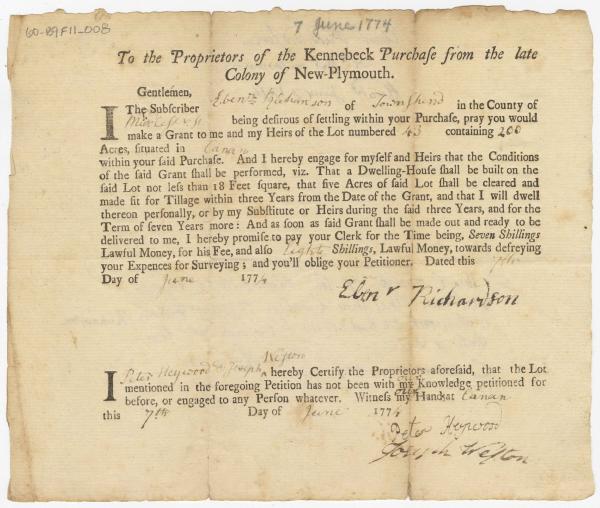 60-B9F11_008
7 June 1774
To the Proprietors of the Kennebeck Purchaſe from the late
Colony of New-Plymouth.
Gentlemen,
I The Subſcriber Ebenr Richardson of Townshend in the County of
Middlesex being deſirous of ſettling within your Purchaſe, pray you would
make a Grant to me and my Heirs of the Lot numbered 43 containing 200
Acres, ſituated in Canan
within your ſaid Purchaſe. And I hereby engage for myſelf and Heirs that the Conditions
of the ſaid Grant ſhall be performed, viz. That a Dwelling-Houſe ſhall be built on the
ſaid Lot not leſs than 18 Feet ſquare, that five Acres of ſaid Lot ſhall be cleared and
made fit for Tillage within three Years from the Date of the Grant, and that I will dwell
thereon perſonally, or by my Subſtitute or Heirs during the ſaid three Years, and for the
Term of ſeven Years more: And as ſoon as ſaid Grant ſhall be made out and ready to be
delivered to me, I hereby promiſe to pay your Clerk for the Time being, Seven Shillings
Lawful Money, for his Fee, and alſo Eight Shillings, Lawful Money, towards defreying
your Expences for Surveying; and you'll oblige your Petitioner. Dated this 7th
Day of June 1774
Ebenr Richardson
Weſton
I Peter Heywood & Joseph ^ hereby Certify the Proprietors aforeſaid, that the Lot
mentioned in the foregoing Petition has not been with my our Knowledge, petitioned for
before, or engaged to any Perſon whatever. Witneſs my Hands at Canan
this 7th Day of June 1774
Peter Heywood
Joseph Weſton